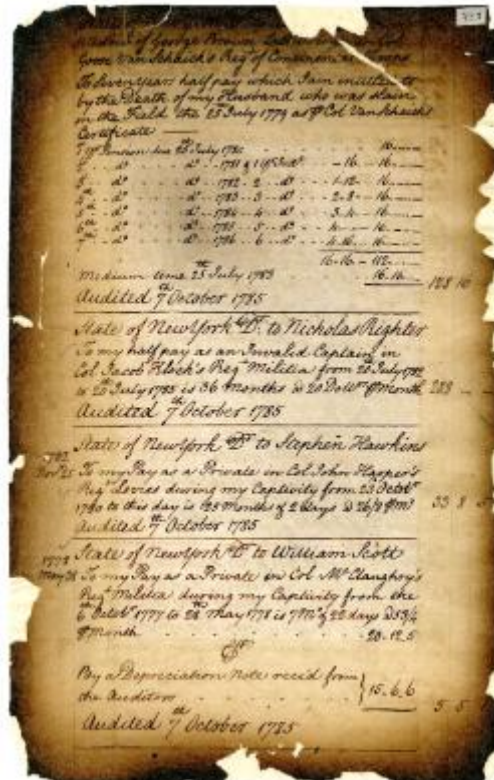 of George
Goose Van Schaick's Regt of Continental Troops
To Seven Years half pay which I am intitled to
by the Death of my Husband who was Slain
in the Field the 25th July 1779 as pr Col Van Schaicks
Certificate —
Yrs Pension due 25th July 1780 16
do do 1781 & 1 16 16
do do 1782 2 do 1.12 16
4th do do 1783 3 do 2.8 16
5 do do 1784 4 do 3.4 16
6th do do 1785 5 do 4 16
7th do do 1786 6 do 4.16 16
16.16 112
Medium time 25th July 1783 16.16
128 16
Audited 7th October 1785
State of New York Dr. to Nicholas Righter
To my half pay as an Invalid Captain in
Col Jacob Klock's Regt Militia from 20 July 1782
to 20 July 1785 is 36 Months @ 20 Dollrs pr Month 288
Audited 7th October 1785
State of New York Dr to Stephen Hawkins
1782
Novr 25 To my Pay as a Private in Col John Harper's
Regt Levies during my Captivity from 23 Octobr
1780 to this day is 25 Months & 2 days @ 26/8 pr Mo 33 8
Audited 7th October 1785
State of New York Dr to William Scott
1778
May 28 To my Pay as a Private in Col McClaughry's
Regt Militia during my Captivity from the
6th Octobr 1777 to 28 May 1778 is 7 Mo & 22 days @ 53/4
pr Month 20.12.5
Cr
By a Depreciation Note recid from
the Auditors 15.6.6
5 5
Audited 7th October 1785